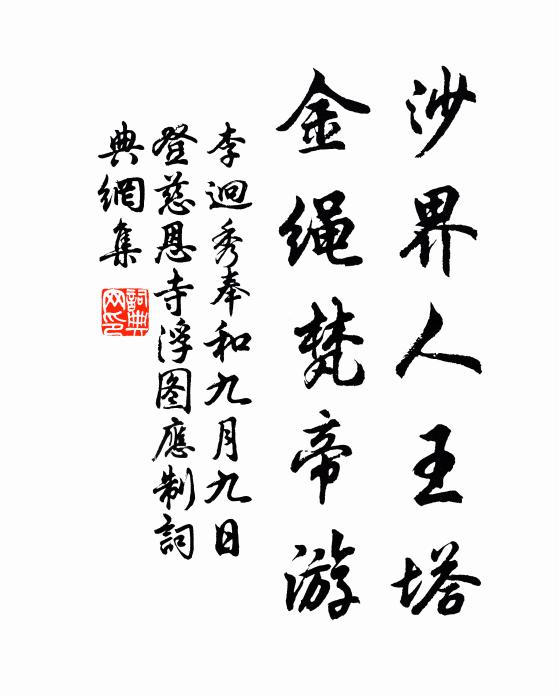 沙界人王塔
金绳梵帝游
李迥秀奉和九月九日
登慈恩寺浮图應制詞
典網集
詞典
网印